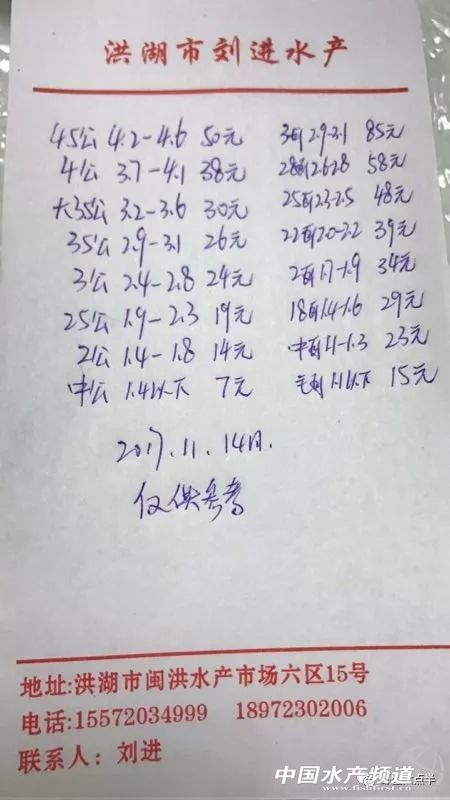 洪湖市刘进水产
45公 4.2-4.6 50元 3母 2.9-3.1 85元
4公 3.7-4.1 38元 28母 2.6-2.8 58元
大35公 3.2-3.6 30元 25母 2.3-2.5 48元
35公 2.9-3.1 26元 22母 2.0-2.2 39元
3公 2.4-2.8 24元 2母 1.7-1.9 34元
25公 1.9-2.3 19元 18母 1.4-1.6 29元
2公 1.4-1.8 14元 中母 1.1-1.3 23元
中公 1.4以下 7元 毛母 1.1以下 15元
2017.11.14日.
仅供参考
地址:洪湖市闽洪水产市场六区15号
电话:15572034999 18972302006
联系人: 刘进
中国水产频道
www.fishfirst.cn